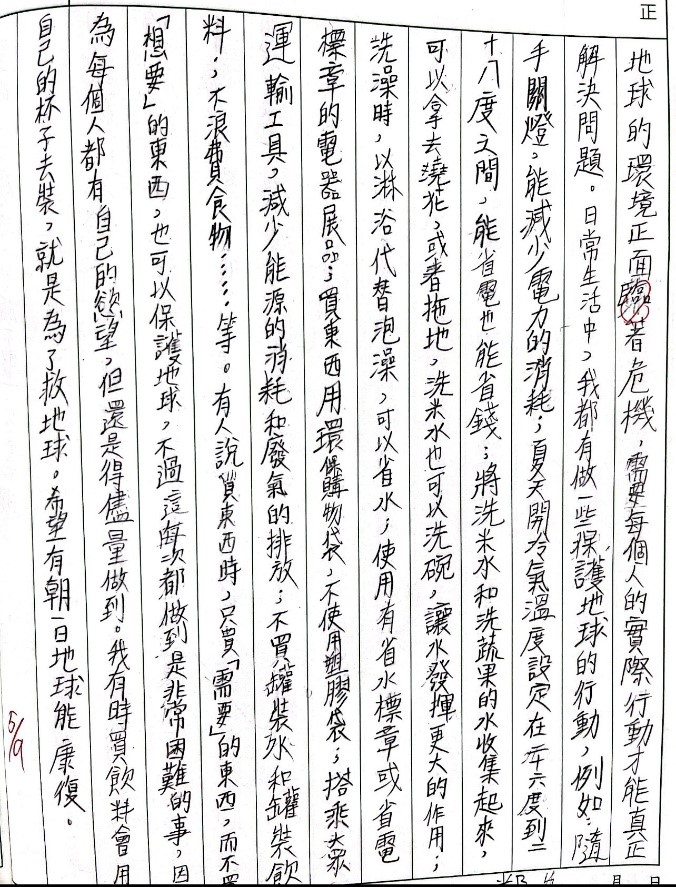 正
地球的環境正面臨著危機，需要每個人的實際行動才能真正
解決問題。日常生活中，我都有做一些保護地球的行動，例如：隨
手關燈，能減少電力的消耗；夏天開冷氣溫度設定在二十六度到二
十八度之間，能省電也能省錢；將洗米水和洗蔬果的水收集起來，
可以拿去澆花，或者拖地，洗米水也可以洗碗，讓水發揮更大的作用；
洗澡時，以淋浴代替泡澡，可以省水；使用有省水標章或省電
標章的電器展品；買東西用環保購物袋，不使用塑膠袋；搭乘大眾
運輸工具，減少能源的消耗和廢氣的排放；不買罐裝水和罐裝飲
料；不浪費食物……等。有人說買東西時，只買「需要」的東西，而不買
「想要」的東西，也可以保護地球，不過這每次都做到是非常困難的事，因
為每個人都有自己的慾望，但還是得儘量做到。我有時買飲料會用
自己的杯子去裝，就是為了救地球。希望有朝一日地球能康復。
5/9
月 日